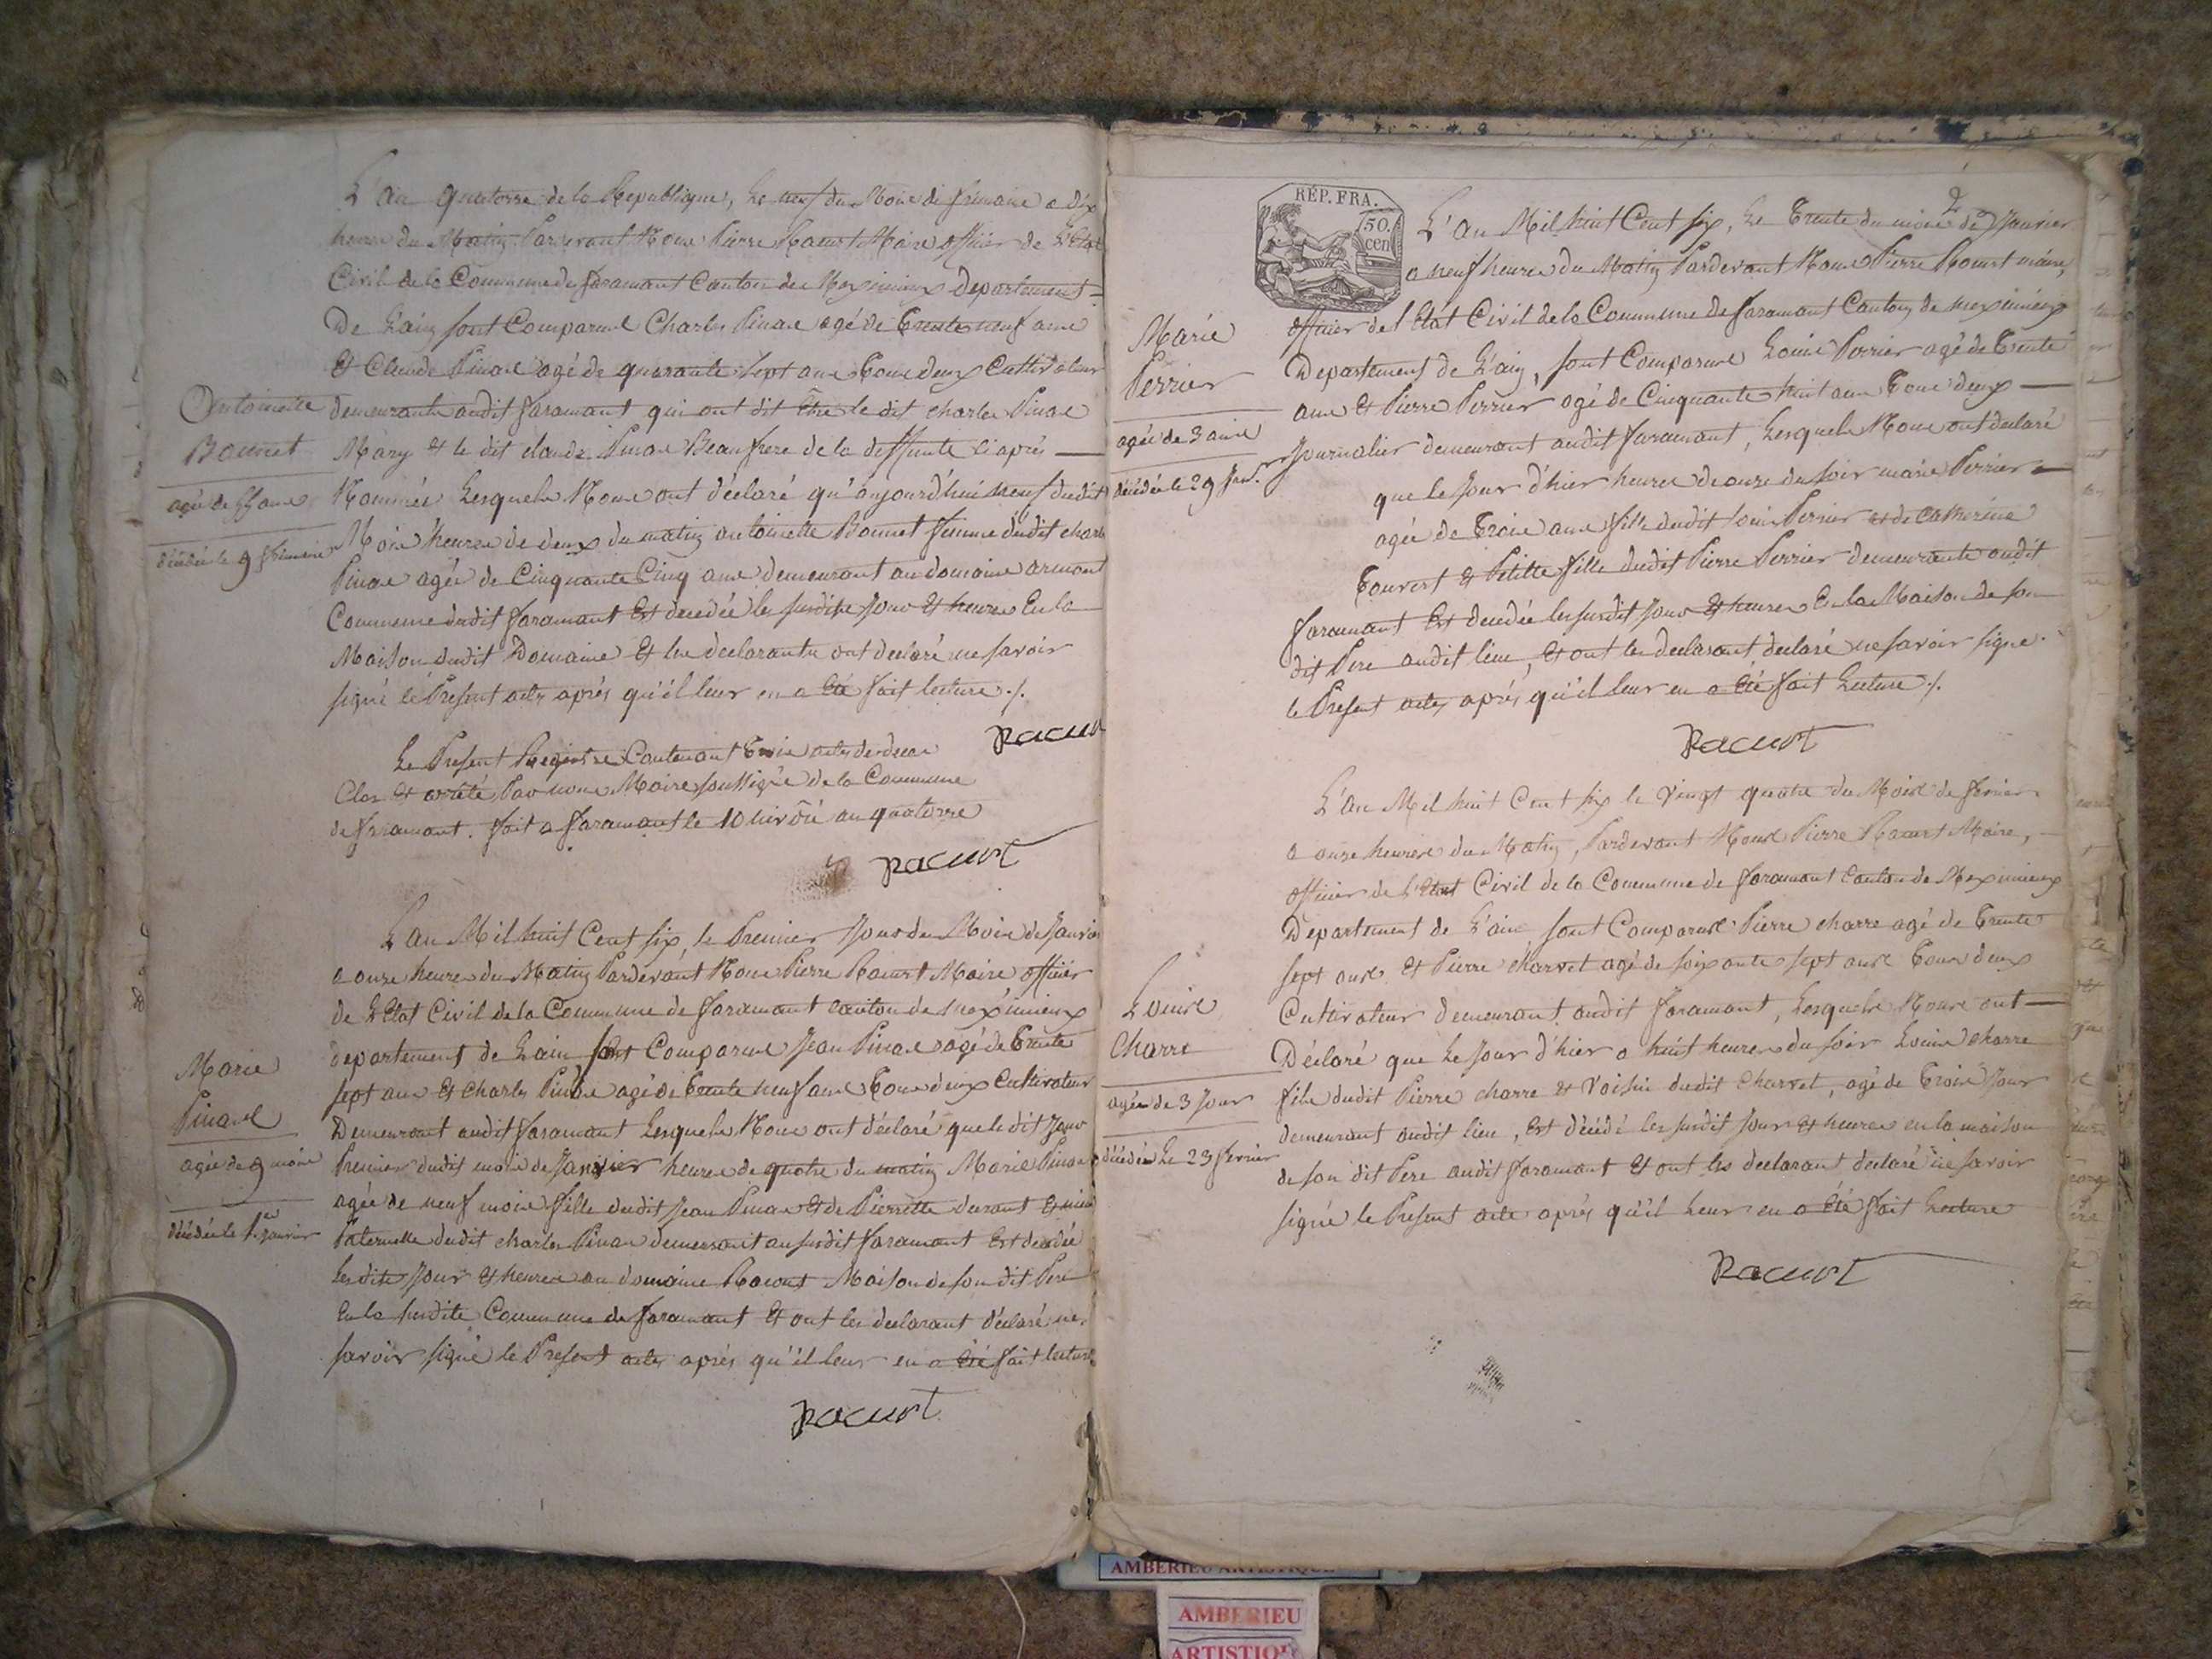 L'an quatorse de la Republique, Le neuf du Mois de frimaire a dix
heures du Matin Pardevant Nous Pierre Racurt Maire officier de L'Etat
Civil de la Commune de faramant Canton de Meximieux departement
De L'ain sont Comparus Charles Pinas agé de Trente neuf ans
Et Claude Pinas agé de quarante sept ans Tous deux Cultivateur
Antoinette
Bonnet
agée de 55 ans
décédée le 9 frimaire
demeurants audit faramant qui ont dit être le dit charles Pinas
Mary et le dit claude Pinas Beaufrere de la deffunte ci après
Nommée Lesquels Nous ont déclaré qu'aujourd'hui neuf dudit
Mois heures de deux du matin antoinette Bonnet femme dudit charles
Pinas agée de Cinquante Cinq ans demeurant au domaine armant
Commune dudit faramant Est decedée les susdits jour Et heures En la
Maison dudit Domaine Et les declarants ont declaré ne savoir
signé le Present acte après qu'il leur en a Eté fait lecture ./.
Racurt
Le Present Registre Contenant Trois actes de deces
Clos Et arrêté Par nous Maire soussigné de la Commune
de faramant. fait a faramant le 10 nivôse an quatorse
Racurt
L'an Mil huit Cent six, le Premier Jour du Mois de Janvier
a onse heures du Matin Pardevant Nous Pierre Racurt Maire officier
de L'Etat Civil de la Commune de faramant canton de meximieux
departement de L'ain sont Comparus Jean Pinas agé de Trente
sept ans Et Charles Pinas agé de Trente neuf ans Tous deux Cultivateur
Marie
Pinas
agée de 9 mois
décédée le 1.er janvier
Demeurant audit faramant Lesquels Nous ont déclaré que le dit Jour
Premier dudit mois de Janvier heures de quatre du matin Marie Pinas
agée de neuf mois fille dudit Jean Pinas et de Pierrette durant Et niece
Paternelle dudit charles Pinas demeurant au susdit faramant Est decedée
Lesdits Jour Et heures au domaine Racurt Maison de son dit Pere
En la susdite Commune de faramant Et ont les declarant déclaré ne
savoir signé le Present acte après qu'il leur en a Eté fait lecture
Racurt
2
RÉP. FRA.
50.
cen
L'an Mil huit Cent six, Le Trente du mois de Janvier
a neuf heures du Matin Pardevant Nous Pierre Racurt maire,
officier de l'Etat Civil de la Commune de faramant Canton de meximieux
Departement de L'ain, sont Comparus Louis Perrier agé de Trente
ans Et Pierre Perrier agé de Cinquante huit ans Tous deux
Marie
Perrier
agée de 3 ans
décédée le 29 Janv.r
Journalier demeurant audit faramant, Lesquels Nous ont declaré
que le Jour d'hier heures de onze du soir marie Perrier
agée de Trois ans fille dudit Louis Perrier et de Catherine
Touvert Et Petitte fille dudit Pierre Perrier demeurante audit
faramant Est decedée les susdit Jour Et heures En la Maison de son
dit Pere audit lieu, Et ont les declarant declaré ne savoir signe
le Present acte, après qu'il leur en a Eté fait Lecture ./.
Racurt
L'an Mil huit Cent six le Vingt quatre du Mois de fevrier
a onze heures du Matin, Pardevant Nous Pierre Racurt Maire,
officier de L'Etat Civil de la Commune de faramant Canton de Meximieux
Departement de L'ain sont Comparus Pierre charre agé de Trente
sept ans Et Pierre charvet agé de soixante sept ans Tous deux
Louis
Charre
agée de 3 Jour
décédée Le 23 fevrier
Cultivateur demeurant audit faramant, Lesquels Nous ont
Déclaré que Le Jour d'hier a huit heures du soir Louis charre
fils dudit Pierre charre et Voisin dudit Charvet, agé de Trois Jour
demeurant audit lieu, Est décédé les susdit Jour Et heures en la maison
de son dit Pere audit faramant Et ont les declarant declaré ne savoir
signé le Present acte après qu'il Leur en a Eté fait Lecture
Racurt
AMBERIEU ARTISTIQUE
AMBERIEU
ARTISTIQUE